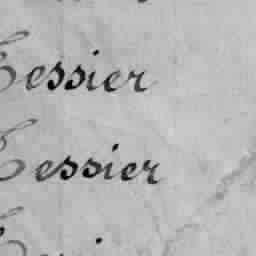 Tessier
Tessier